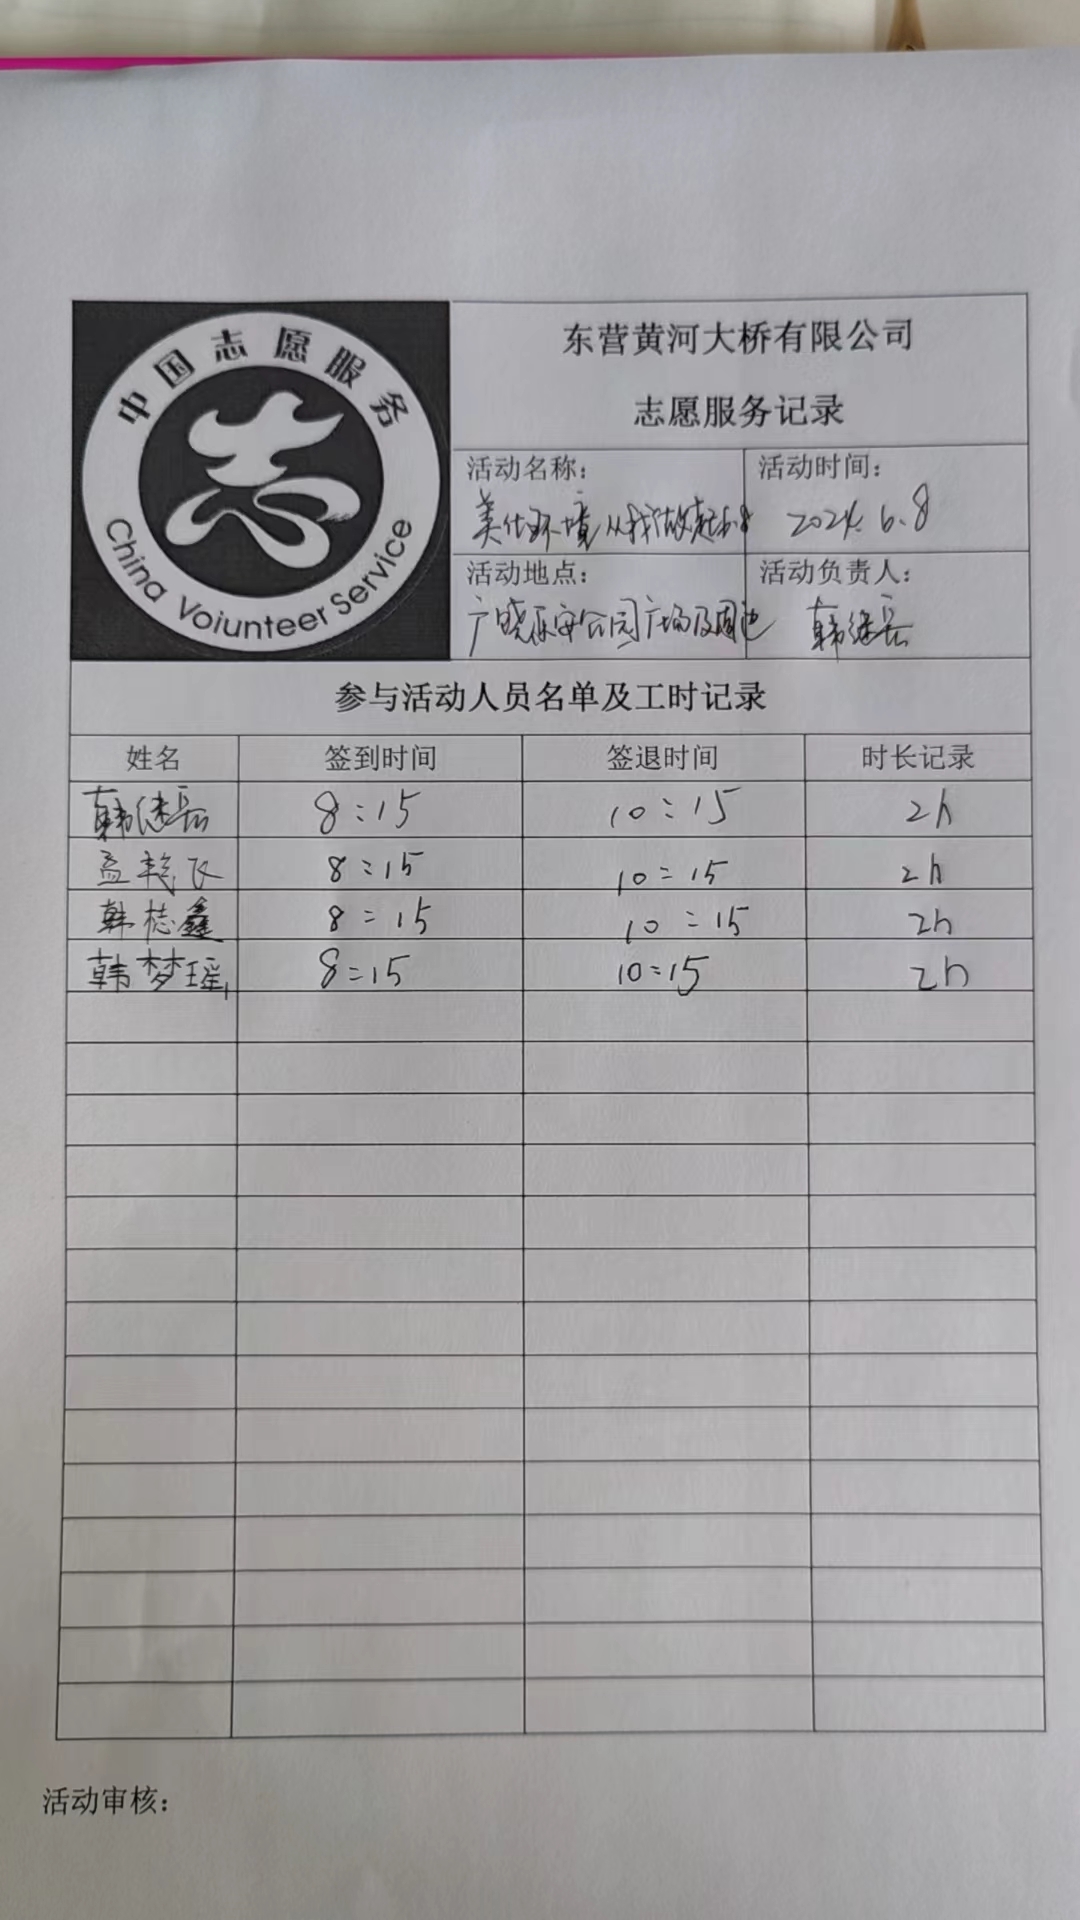 中国志愿服务
China Voiunteer Service
东营黄河大桥有限公司
志愿服务记录
活动名称:
美化环境从我做起6.8
活动时间:
2024.6.8
活动地点:
广饶 公园广场及周边
活动负责人:
韩继岳
参与活动人员名单及工时记录
姓名 签到时间 签退时间 时长记录
韩继岳 8:15 10:15 2h
孟 飞 8:15 10:15 2h
韩 鑫 8:15 10:15 2h
韩梦瑶 8:15 10:15 2h
活动审核: